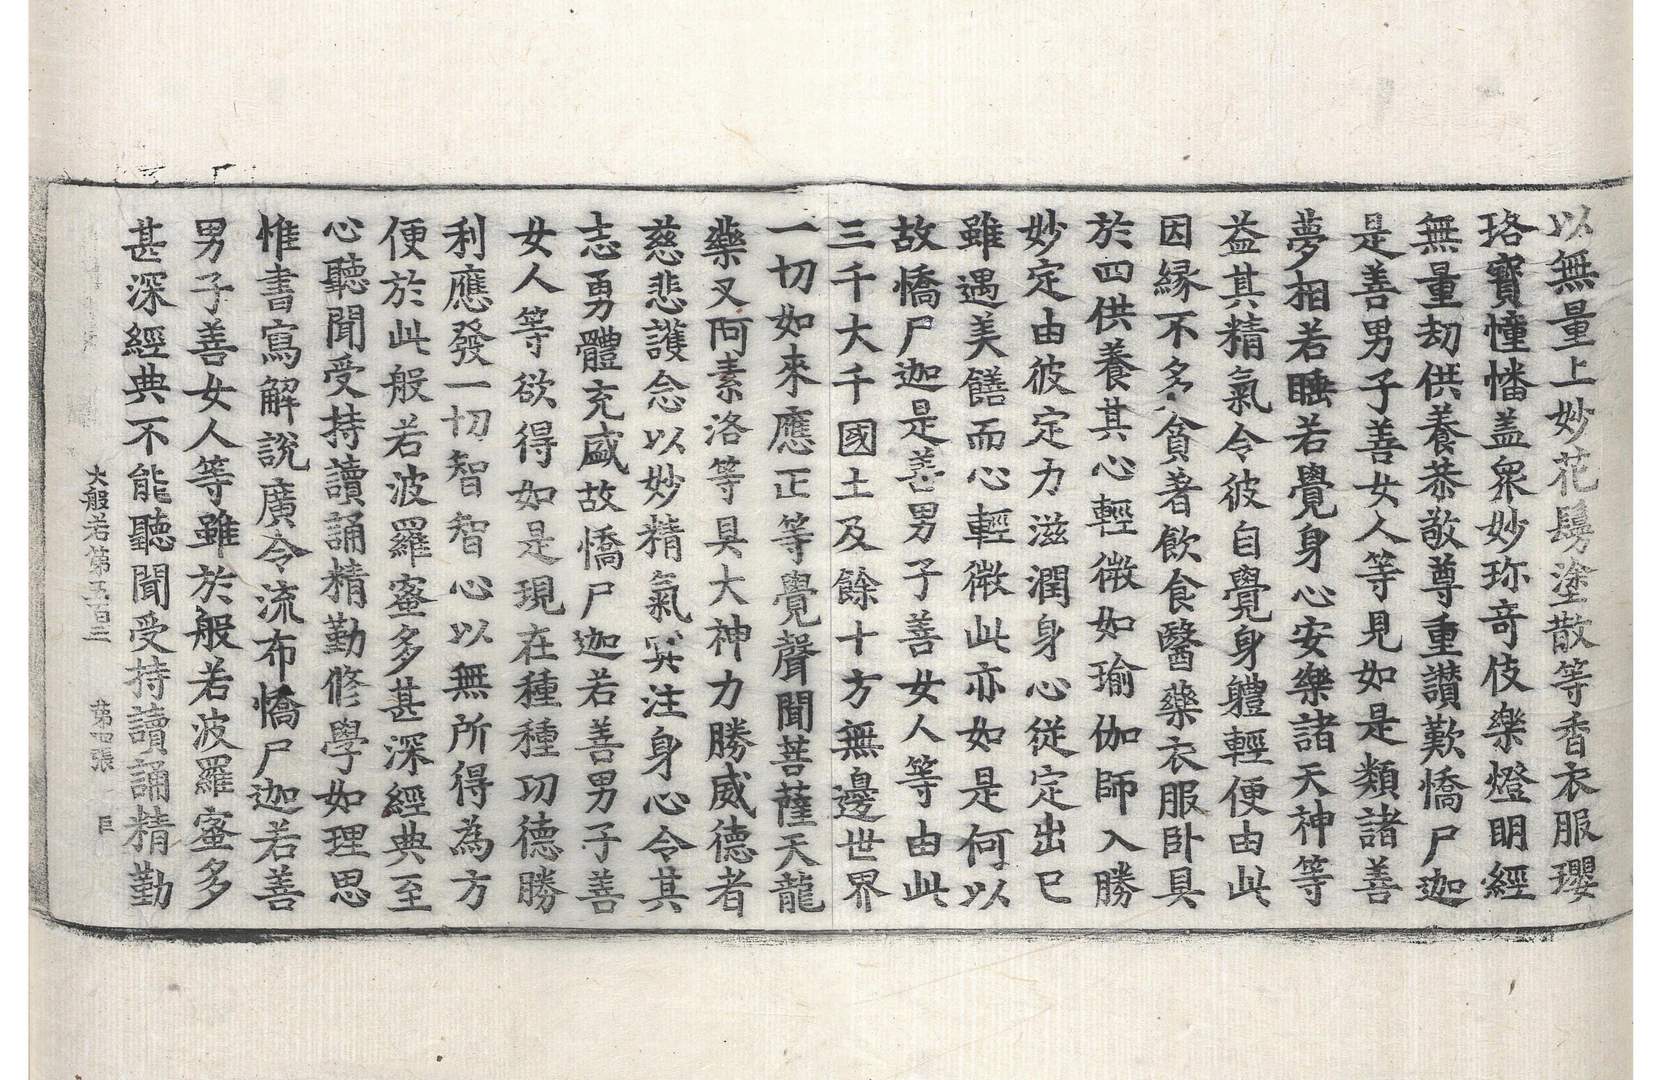 以無量上妙花鬘塗散等香衣服瓔
珞寶幢幡盖衆妙珎奇伎樂燈明經
無量劫供養恭敬尊重讃歎憍尸迦
是善男子善女人等見如是類諸善
夢相若睡若覺身心安樂諸天神等
益其精氣令彼自覺身軆輕便由此
因縁不多貪著飲食醫藥衣服卧具
於四供養其心輕微如瑜伽師入勝
妙定由彼定力滋潤身心從定出已
雖遇美饍而心輕微此亦如是何以
故憍尸迦是善男子善女人等由此
三千大千國土及餘十方無邊世界
一切如來應正等覺聲聞菩薩天龍
藥叉阿素洛等具大神力勝威德者
慈悲護念以妙精氣冥注身心令其
志勇體充盛故憍尸迦若善男子善
女人等欲得如是現在種種功德勝
利應發一切智智心以無所得為方
便於此般若波羅蜜多甚深經典至
心聽聞受持讀誦精勤修學如理思
惟書寫解說廣令流布憍尸迦若善
男子善女人等雖於般若波羅蜜多
甚深經典不能聽聞受持讀誦精勤
大般若第五百三 第四張